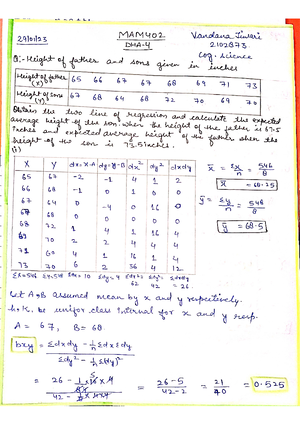 27/10/23 MAM402 Vandana Tiwari
DHA-4 2102873
Cog. Science
Q:- Height of father and sons given in inches
Height of father (X) 65 66 67 67 68 69 71 73
Height of sons (Y) 67 68 64 68 72 70 69 70
Obtain the two line of regression and calculate the expected
average height of the son when the height of the father is 67.5
inches and expected average height of the father when the
height of the son is 73.5 inches.
(i)
X Y dx=X-A dy=Y-B dx² dy² dxdy
65 67 -2 -1 4 1 2
66 68 -1 0 1 0 0
67 64 0 -4 0 16 0
67 68 0 0 0 0 0
68 72 1 4 1 16 4
69 70 2 2 4 4 4
71 69 4 1 16 1 4
73 70 6 2 36 4 12
Σx=546 Σy=548 Σdx=10 Σdy=4 Σdx²=62 Σdy²=42 Σdxdy=26
x̄ = Σx/n = 546/8
x̄ = 68.25
ȳ = Σy/n = 548/8
ȳ = 68.5
Let A & B assumed mean by x and y respectively.
h & k be uniform class interval for x and y resp.
A = 67, B = 68
bxy = Σdxdy - 1/n Σdx Σdy / Σdy² - 1/n (Σdy)²
= 26 - 1/8 × 10 × 4 / 42 - 1/8 × 4 × 4 = 26-5 / 42-2 = 21/40 = 0.525